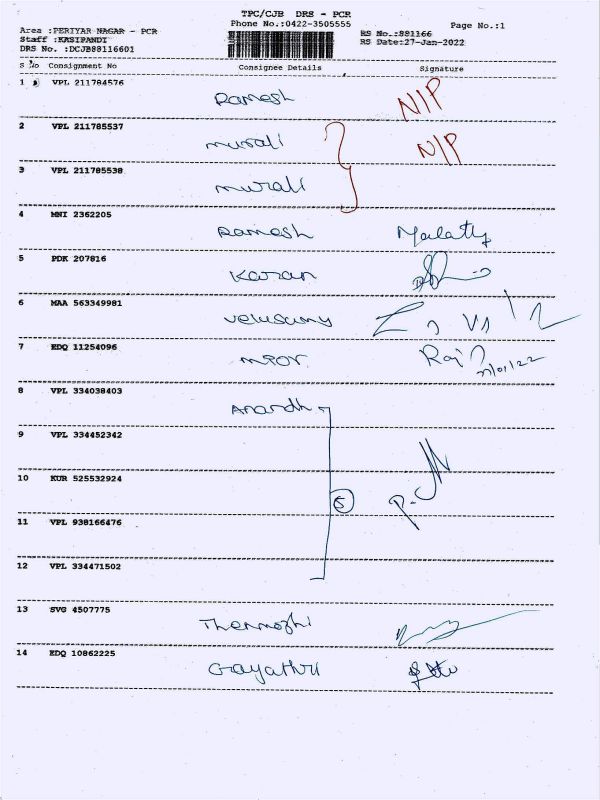 TPC/CJB DRS - PCR
Phone No.:0422-3505555
Page No.:1
Area :PERIYAR NAGAR - PCR
Staff :KASIPANDI
DRS No. :DCJB88116601
RS No.:881166
RS Date:27-Jan-2022
S No Consignment No Consignee Details Signature
1 VPL 211784576 Ramesh N/P
2 VPL 211785537 murali N/P
3 VPL 211785538 murali
4 MNI 2362205 Ramesh Malathy
5 PDK 207816 Karan
6 MAA 563349981 Velusamy
7 EDQ 11254096
8 VPL 334038403 Anandh
9 VPL 334452342
10 KUR 525532924 5
11 VPL 938166476
12 VPL 334471502
13 SVG 4507775 Thenmozhi
14 EDQ 10862225 Gayathri